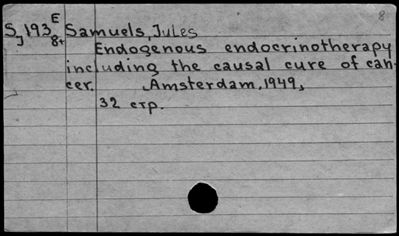 8
S, 193 E Samuels, Jules
J 8+ Endogenous endocrinotherapy
including the causal cure of can-
cer. Amsterdam, 1949,
32 стр.